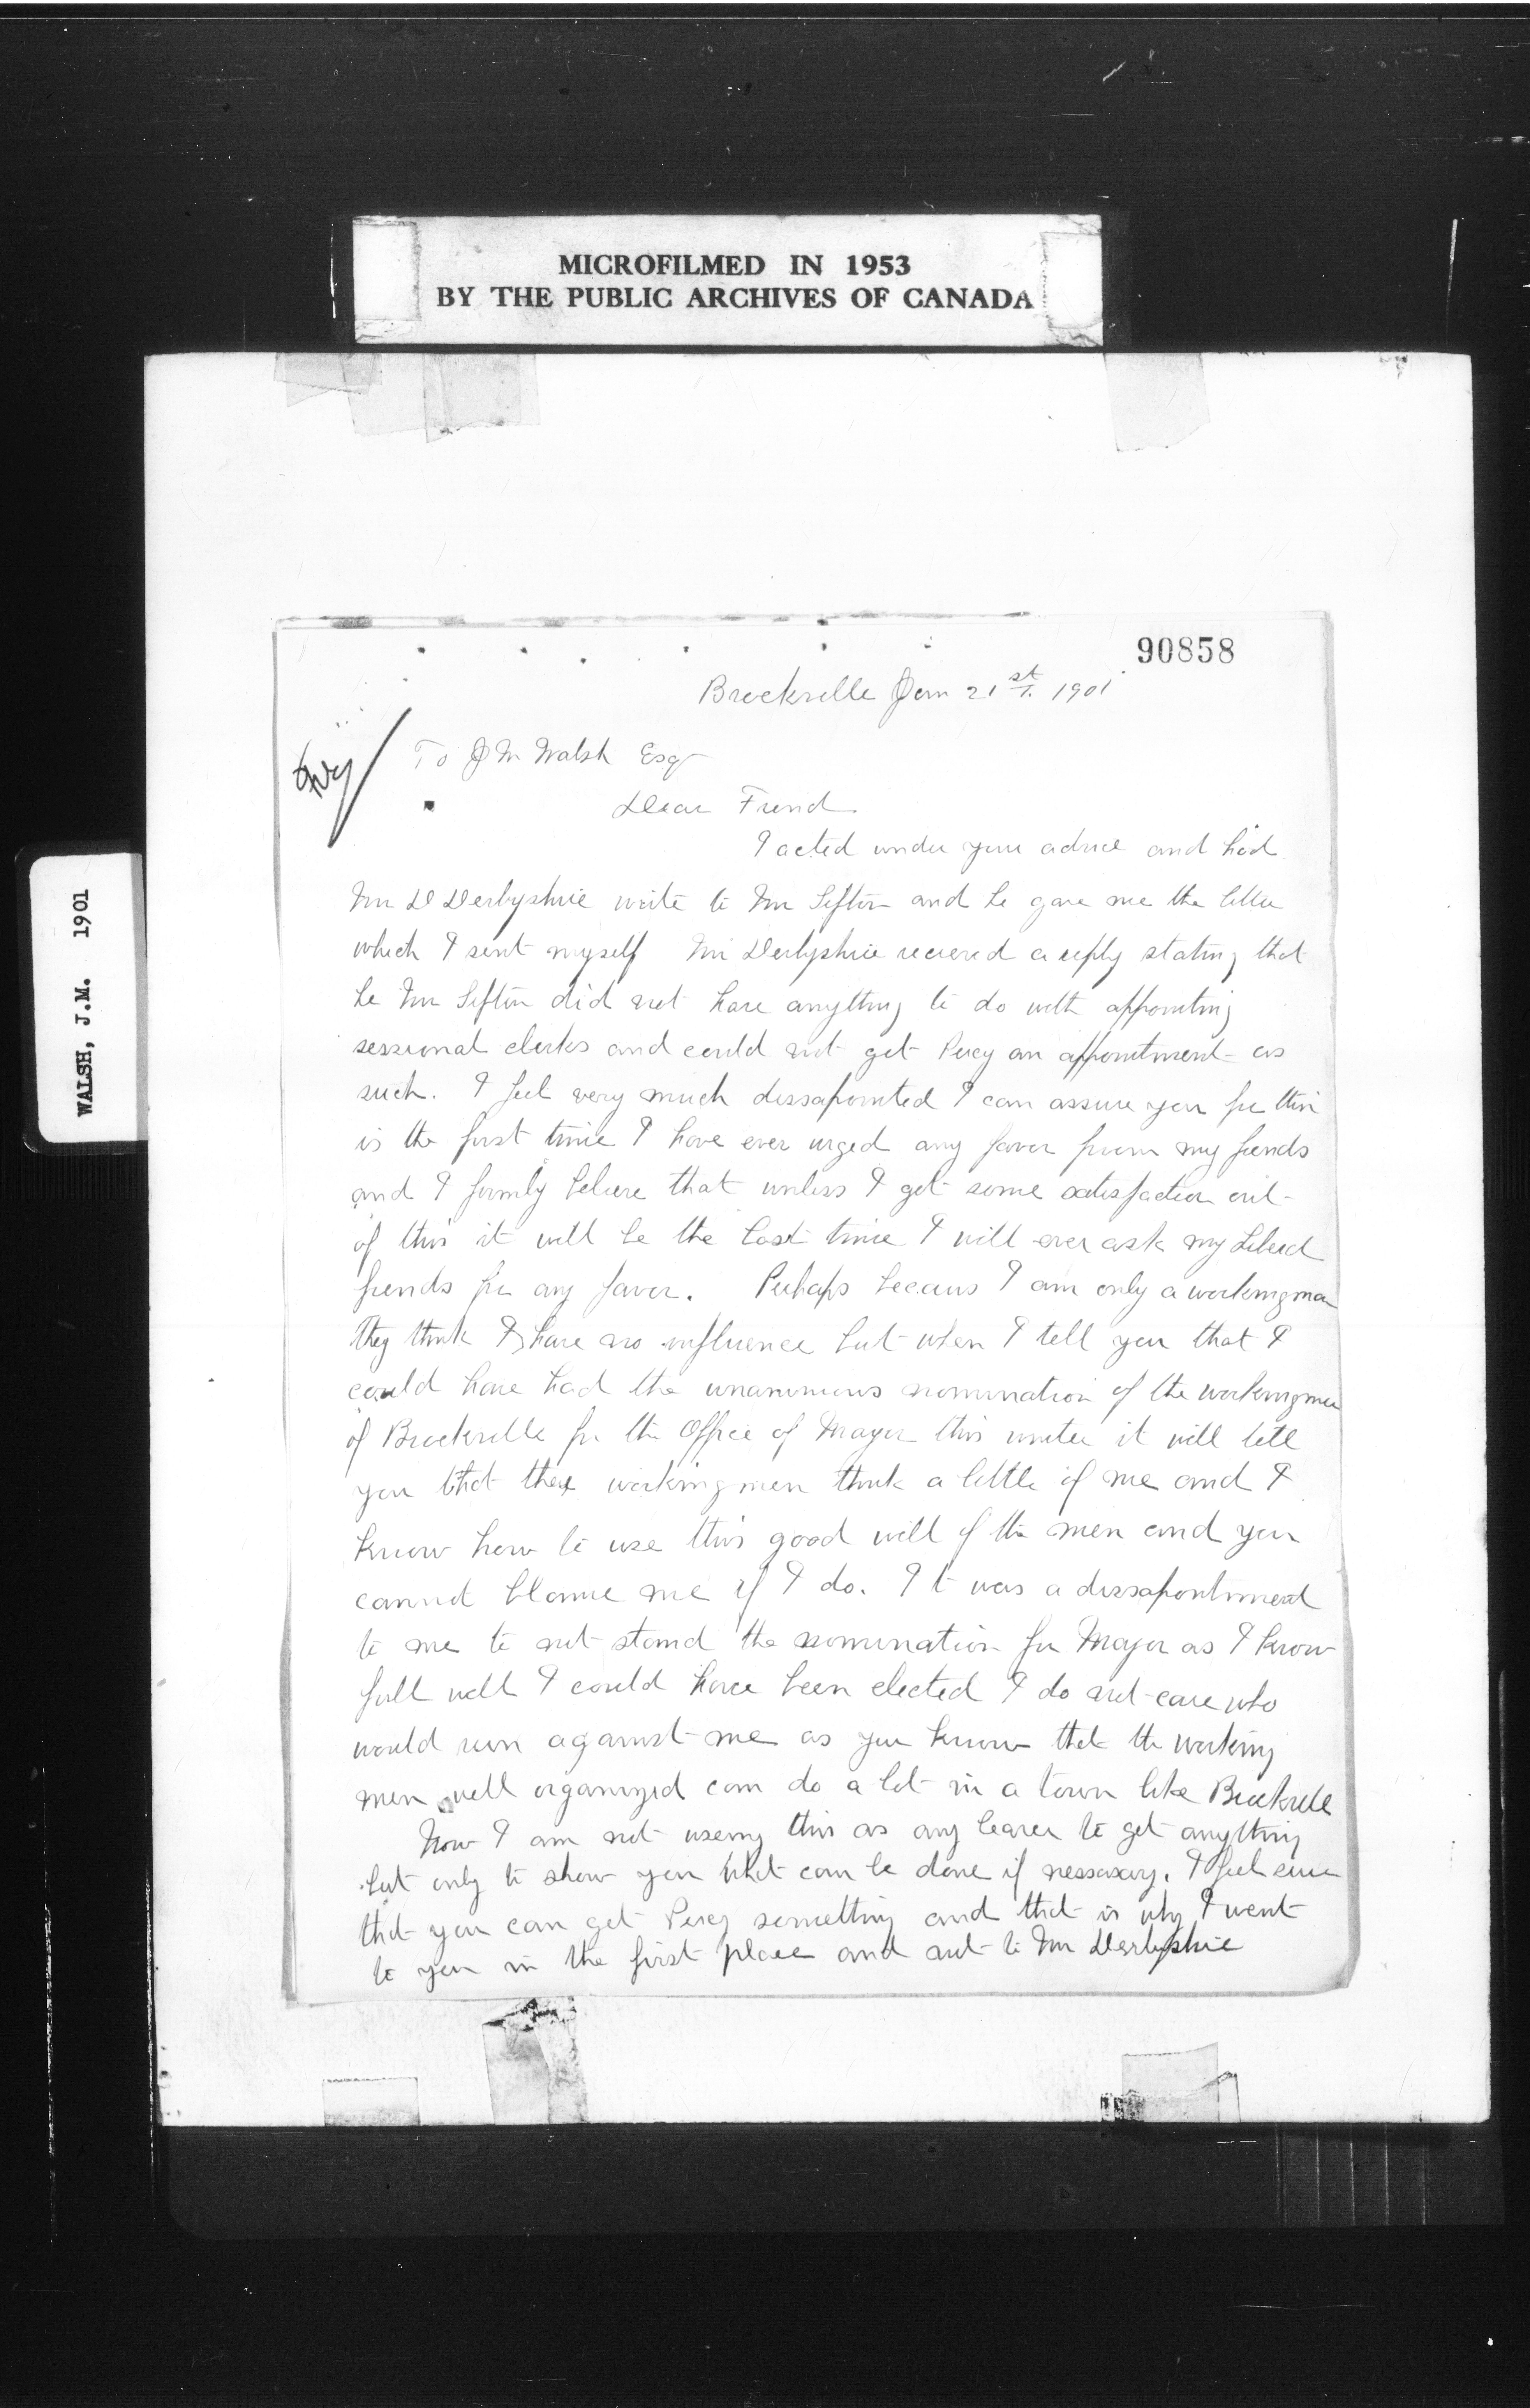 MICROFILMED IN 1953
BY THE PUBLIC ARCHIVES OF CANADA
WALSH, J.M. 1901
90858
Brockville Jan 21st 1901
To J M Walsh Esq
Dear Friend
I acted under your advice and had
Mr D Derbyshire write to Mr Sifton and he gave me the letter
which I sent myself Mr Derbyshire recieved a reply stating that
he Mr Sifton did not have anything to do with appointing
sessional clerks and could not get Percy an appointment as
such. I feel very much dissapointed I can assure you for this
is the first time I have ever urged any favor from my friends
and I firmly believe that unless I get some satisfaction out
of this it will be the last time I will ever ask my Liberal
friends for any favor. Perhaps becaus I am only a workingman
they think I have no influence but when I tell you that I
could have had the unanimous nomination of the workingmen
of Brockville for the Office of Mayor this winter it will tell
you that these workingmen think a little of me and I
know how to use this good will of the men and you
cannot blame me if I do. It was a dissapointment
to me to not stand the nomination for Mayor as I know
full well I could have been elected I do not care who
would run against me as you know that the working
men well organized can do a lot in a town like Brockville
Now I am not useing this as any to get anything
but only to show you what can be done if nessasary. I feel sure
that you can get Percy something and that is why I went
to you in the first place and not to Mr Derbyshire